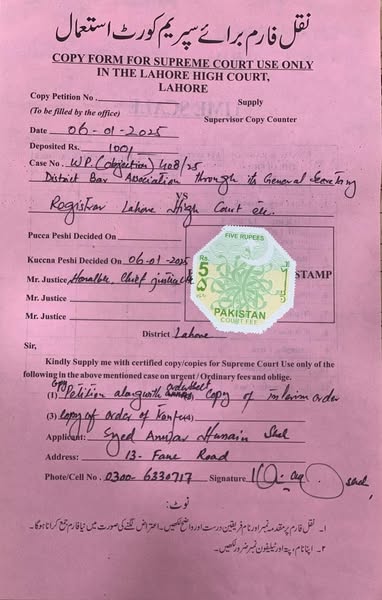 نقل فارم برائے سپریم کورٹ استعمال
COPY FORM FOR SUPREME COURT USE ONLY
IN THE LAHORE HIGH COURT,
LAHORE
Copy Petition No
Supply
(To be filled by the office)
Supervisor Copy Counter
Date 06-01-2025
Deposited Rs. 100/
Case No. W.P. (objection) 408/25
District Bar Association through its General Secretary
VS
Registrar Lahore High Court etc.
Pucca Peshi Decided On
Kuccna Peshi Decided On 06-01-2025
Mr. Justice Honalble Chief justice
Mr. Justice
Mr. Justice
STAMP
FIVE RUPEES
Rs.
5
PAKISTAN
COURT FEE
District Lahore
Sir,
Kindly Supply me with certified copy/copies for Supreme Court Use only of the
following in the above mentioned case on urgent / Ordinary fees and oblige.
Copy
(1) Petition alongwith copy of interim order
(3) Copy of order of
Applicant: Syed Hussain
Address: 13- Fane Road
Phate/Cell No. 0300-6330717 Signature
نوٹ:
۱۔ نقل فارم پر مقدمہ نمبر اور نام فریقین درست اور واضح لکھیں۔ اعتراض لگنے کی صورت میں نیا فارم جمع کرانا ہوگا۔
۲۔ اپنا نام، پتہ اور ٹیلیفون نمبر ضرور لکھیں۔